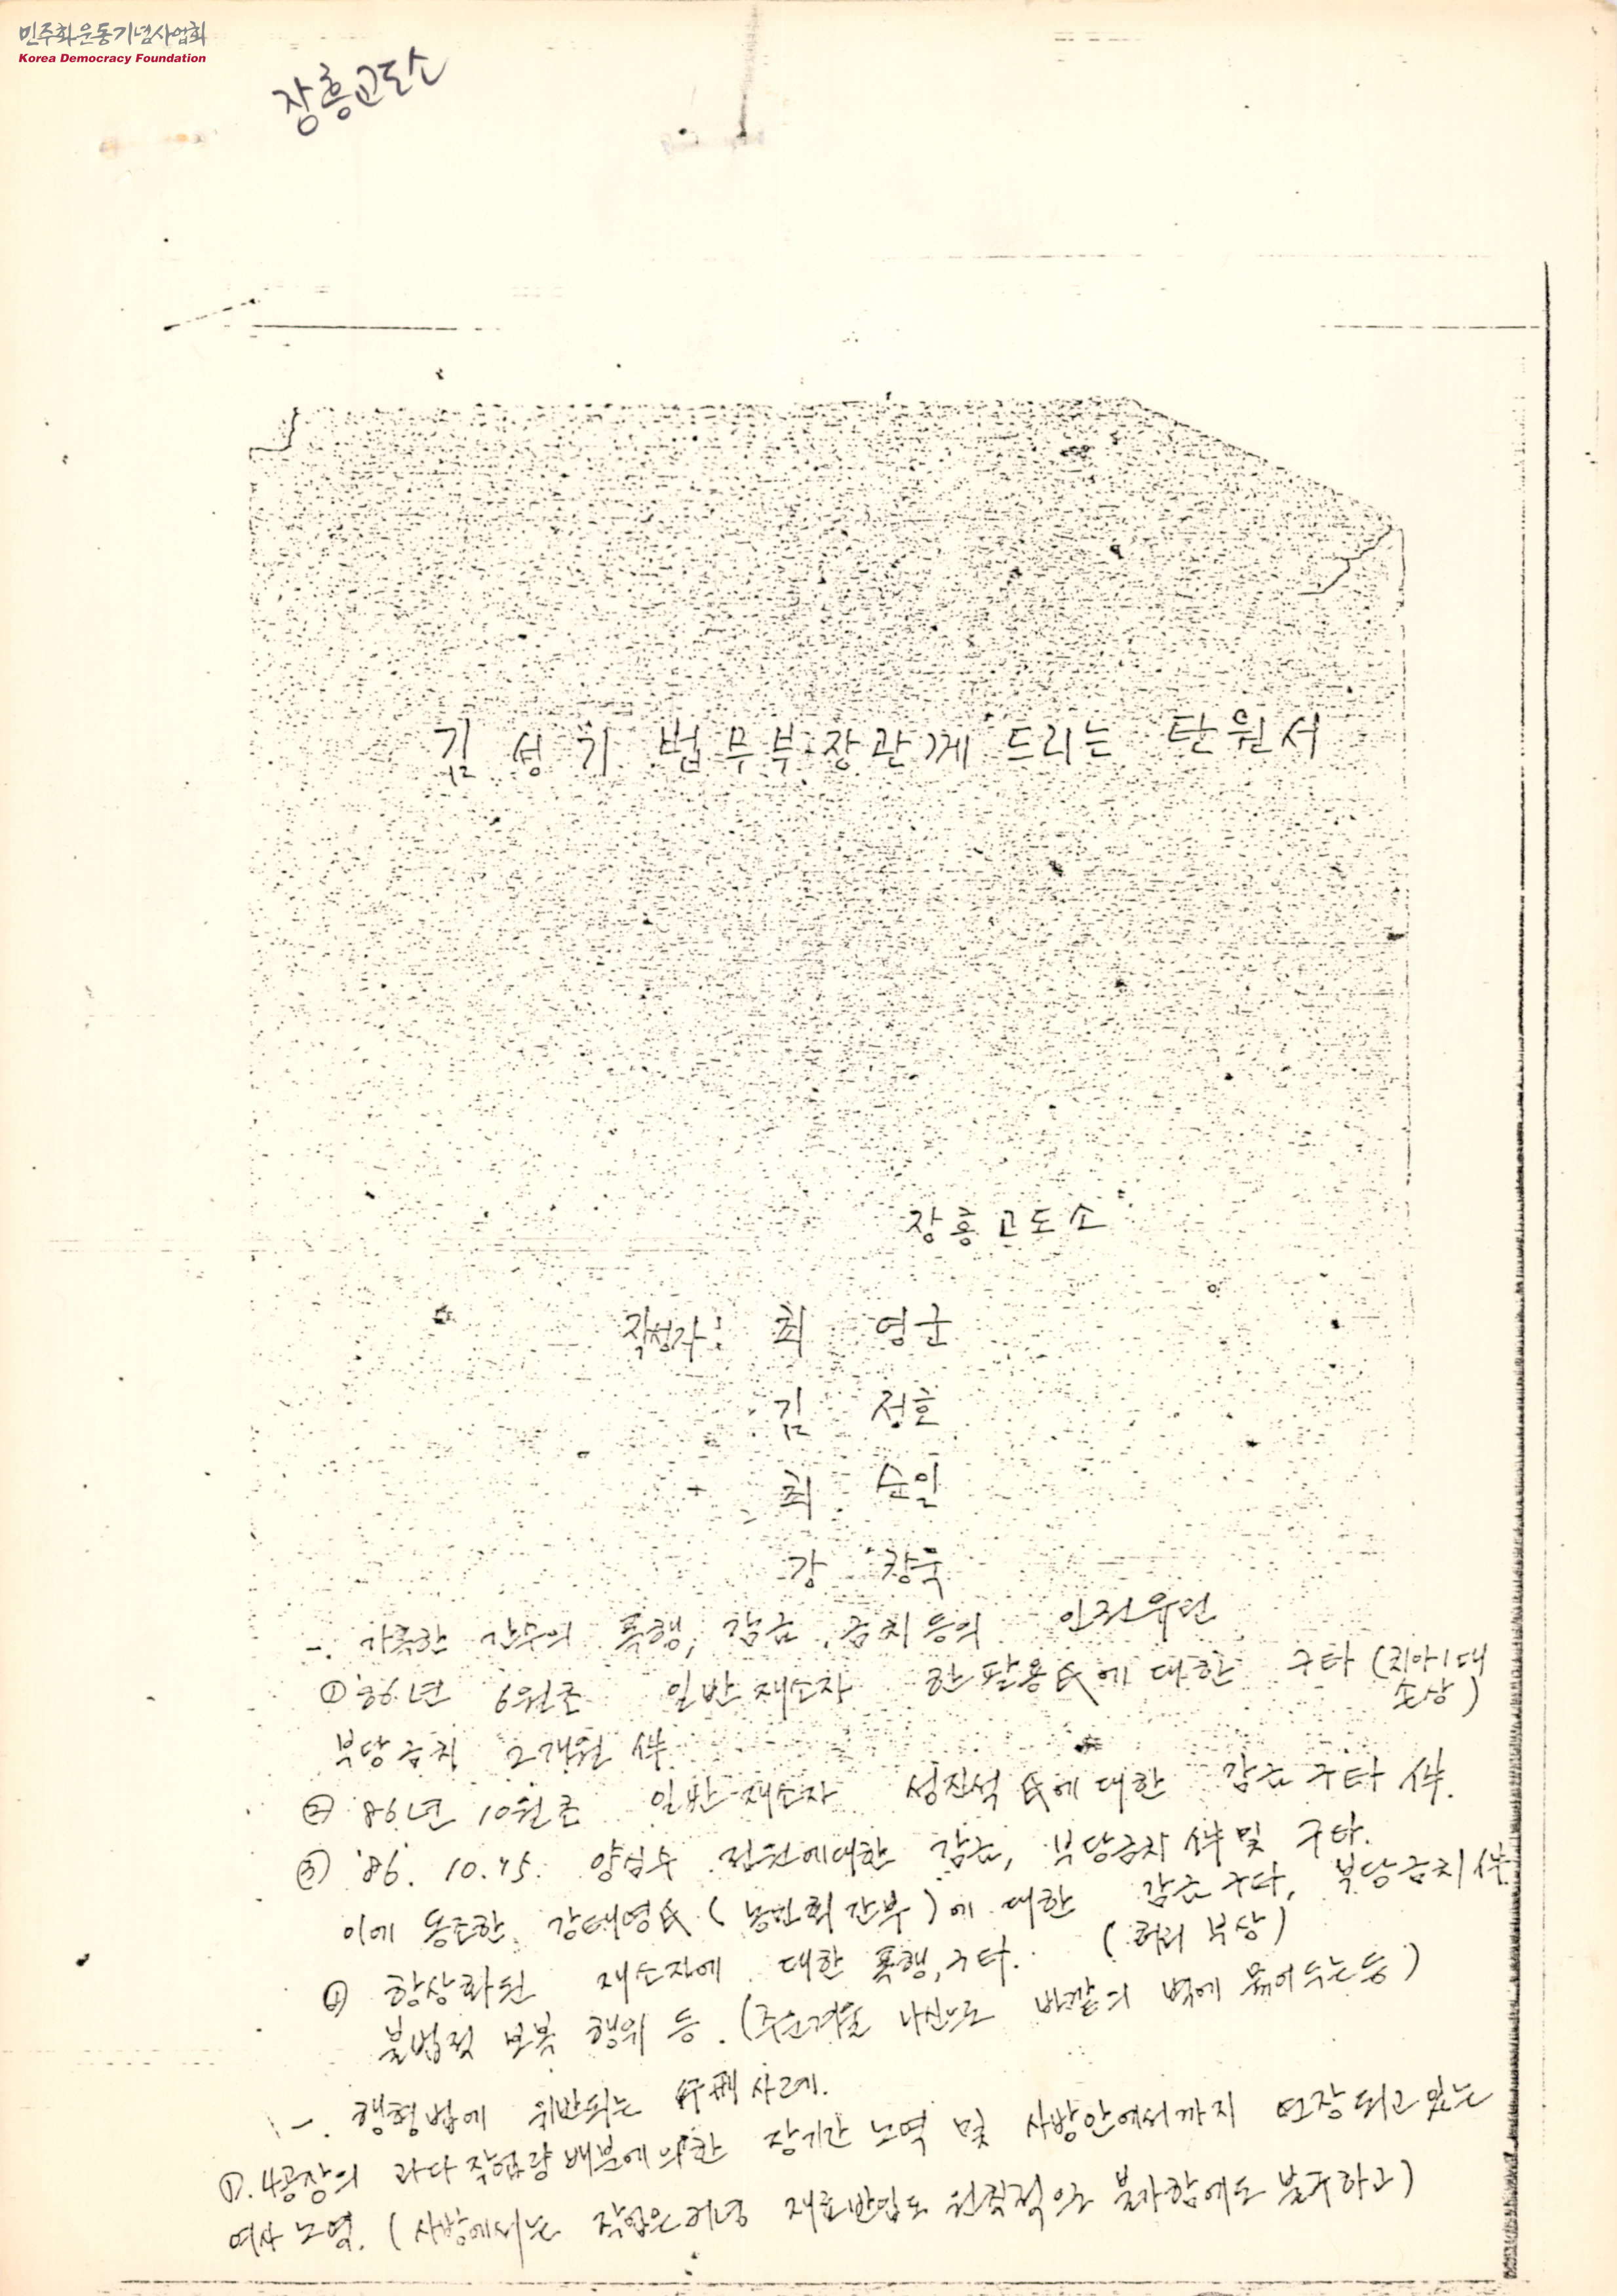 민주화운동기념사업회
Korea Democracy Foundation
장흥교도소
김성기 법무부장관께 드리는 탄원서
장흥교도소
작성자: 최 영근
김 정호
최 순일
강 창욱
一. 가혹한 간부의 폭행, 감금, 금치등의 인권유린
① 86년 6월초 일반재소자 한팔용氏에 대한 구타 (치아1대
손상)
부당금치 2개월 件.
② '86년 10월초 일반재소자 성진석氏에 대한 감금구타 件.
③ '86. 10. 15. 양심수 전원에대한 감금, 부당금치件 및 구타.
이에 동조한 강대영氏 (농민회간부)에 대한 감금구타, 부당금치件
(허리 부상)
④ 항상화된 재소자에 대한 폭행, 구타.
불법적 보복 행위 등. (추운겨울 나신으로 바깥의 벽에 묶어두는등)
一. 행형법에 위반되는 行刑사례.
①. 4공장의 과다작업량배분에의한 장기간 노역 및 사방안에서까지 연장되고있는
여사노역. (사방에서는 작업은커녕 재료반입도 원칙적으로 불가함에도 불구하고)